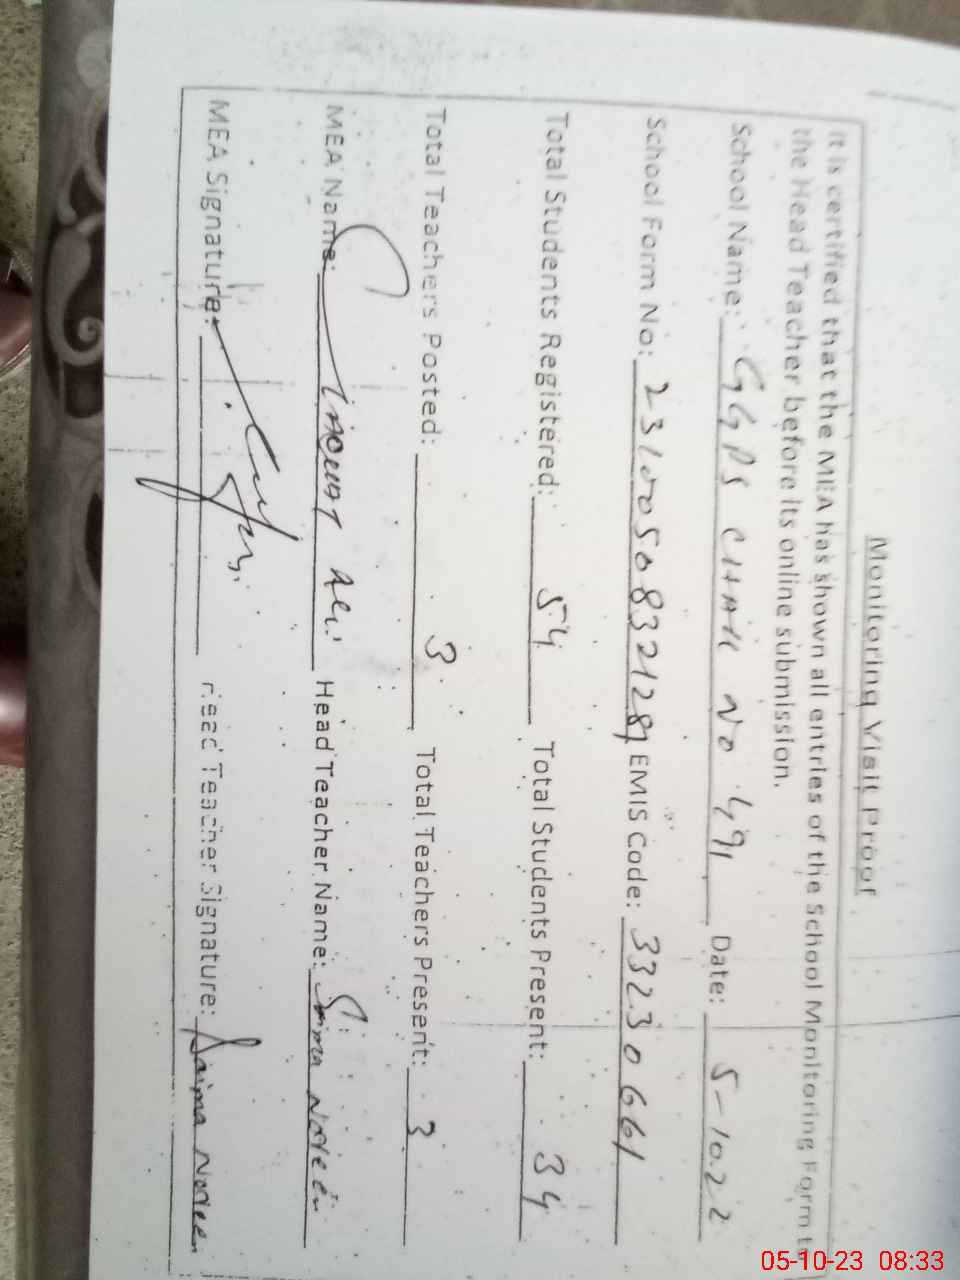 Monitoring Visit Proof
It is certified that the MEA has shown all entries of the School Monitoring Form to
the Head Teacher before its online submission.
School Name: GGPS CHAK NO 491 Date: 5-10.22
School Form No: EMIS Code: 33230661
Total Students Registered: 54 Total Students Present: 34
Total Teachers Posted: 3 Total Teachers Present: 3
MEA Name: Ali Head Teacher Name: Saima Noreen
MEA Signature: Head Teacher Signature: Saima Noreen
05-10-23 08:33